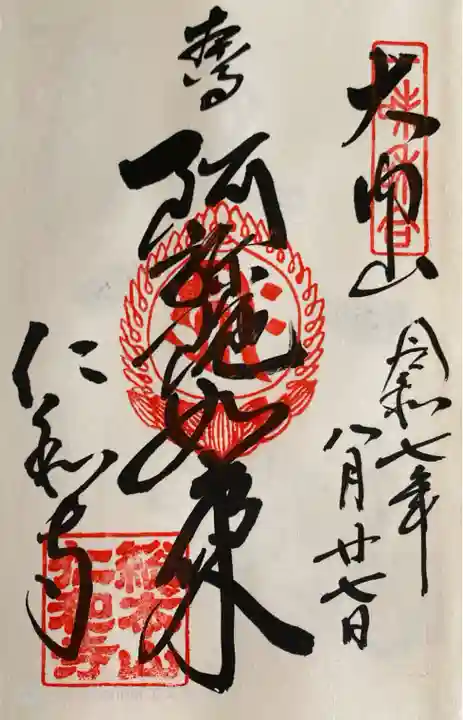 大内山
令和七年
八月廿七日
奉
阿弥陀如来
仁和寺
総本山
仁和寺